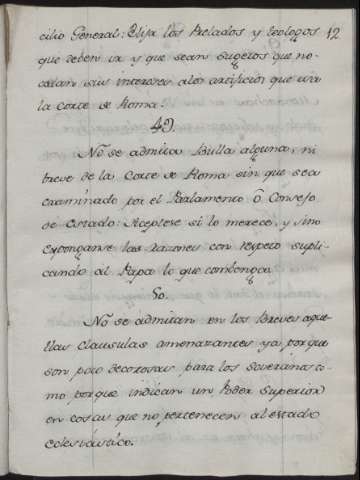 cilio General: Elija los Prelados y teologos 12
que deben ir y que sean sugetos que no
cedan sus intereses a los artificios que usa
la Corte de Roma.
49.
No se admita Bulla alguna, ni
breve de la Corte de Roma sin que sea
examinado por el Parlamento ô Consejo
de Estado: Aceptese si lo merece, y sino
expongase las razones con respeto supli-
cando al Papa lo que combenga.
50.
No se admitan en los Breves aque-
llas clausulas amenazantes ya porque
son poco decorosas para los soveranos co-
mo porque indican un Poder Superior
en cosas que no pertenecen al estado
eclesiástico.